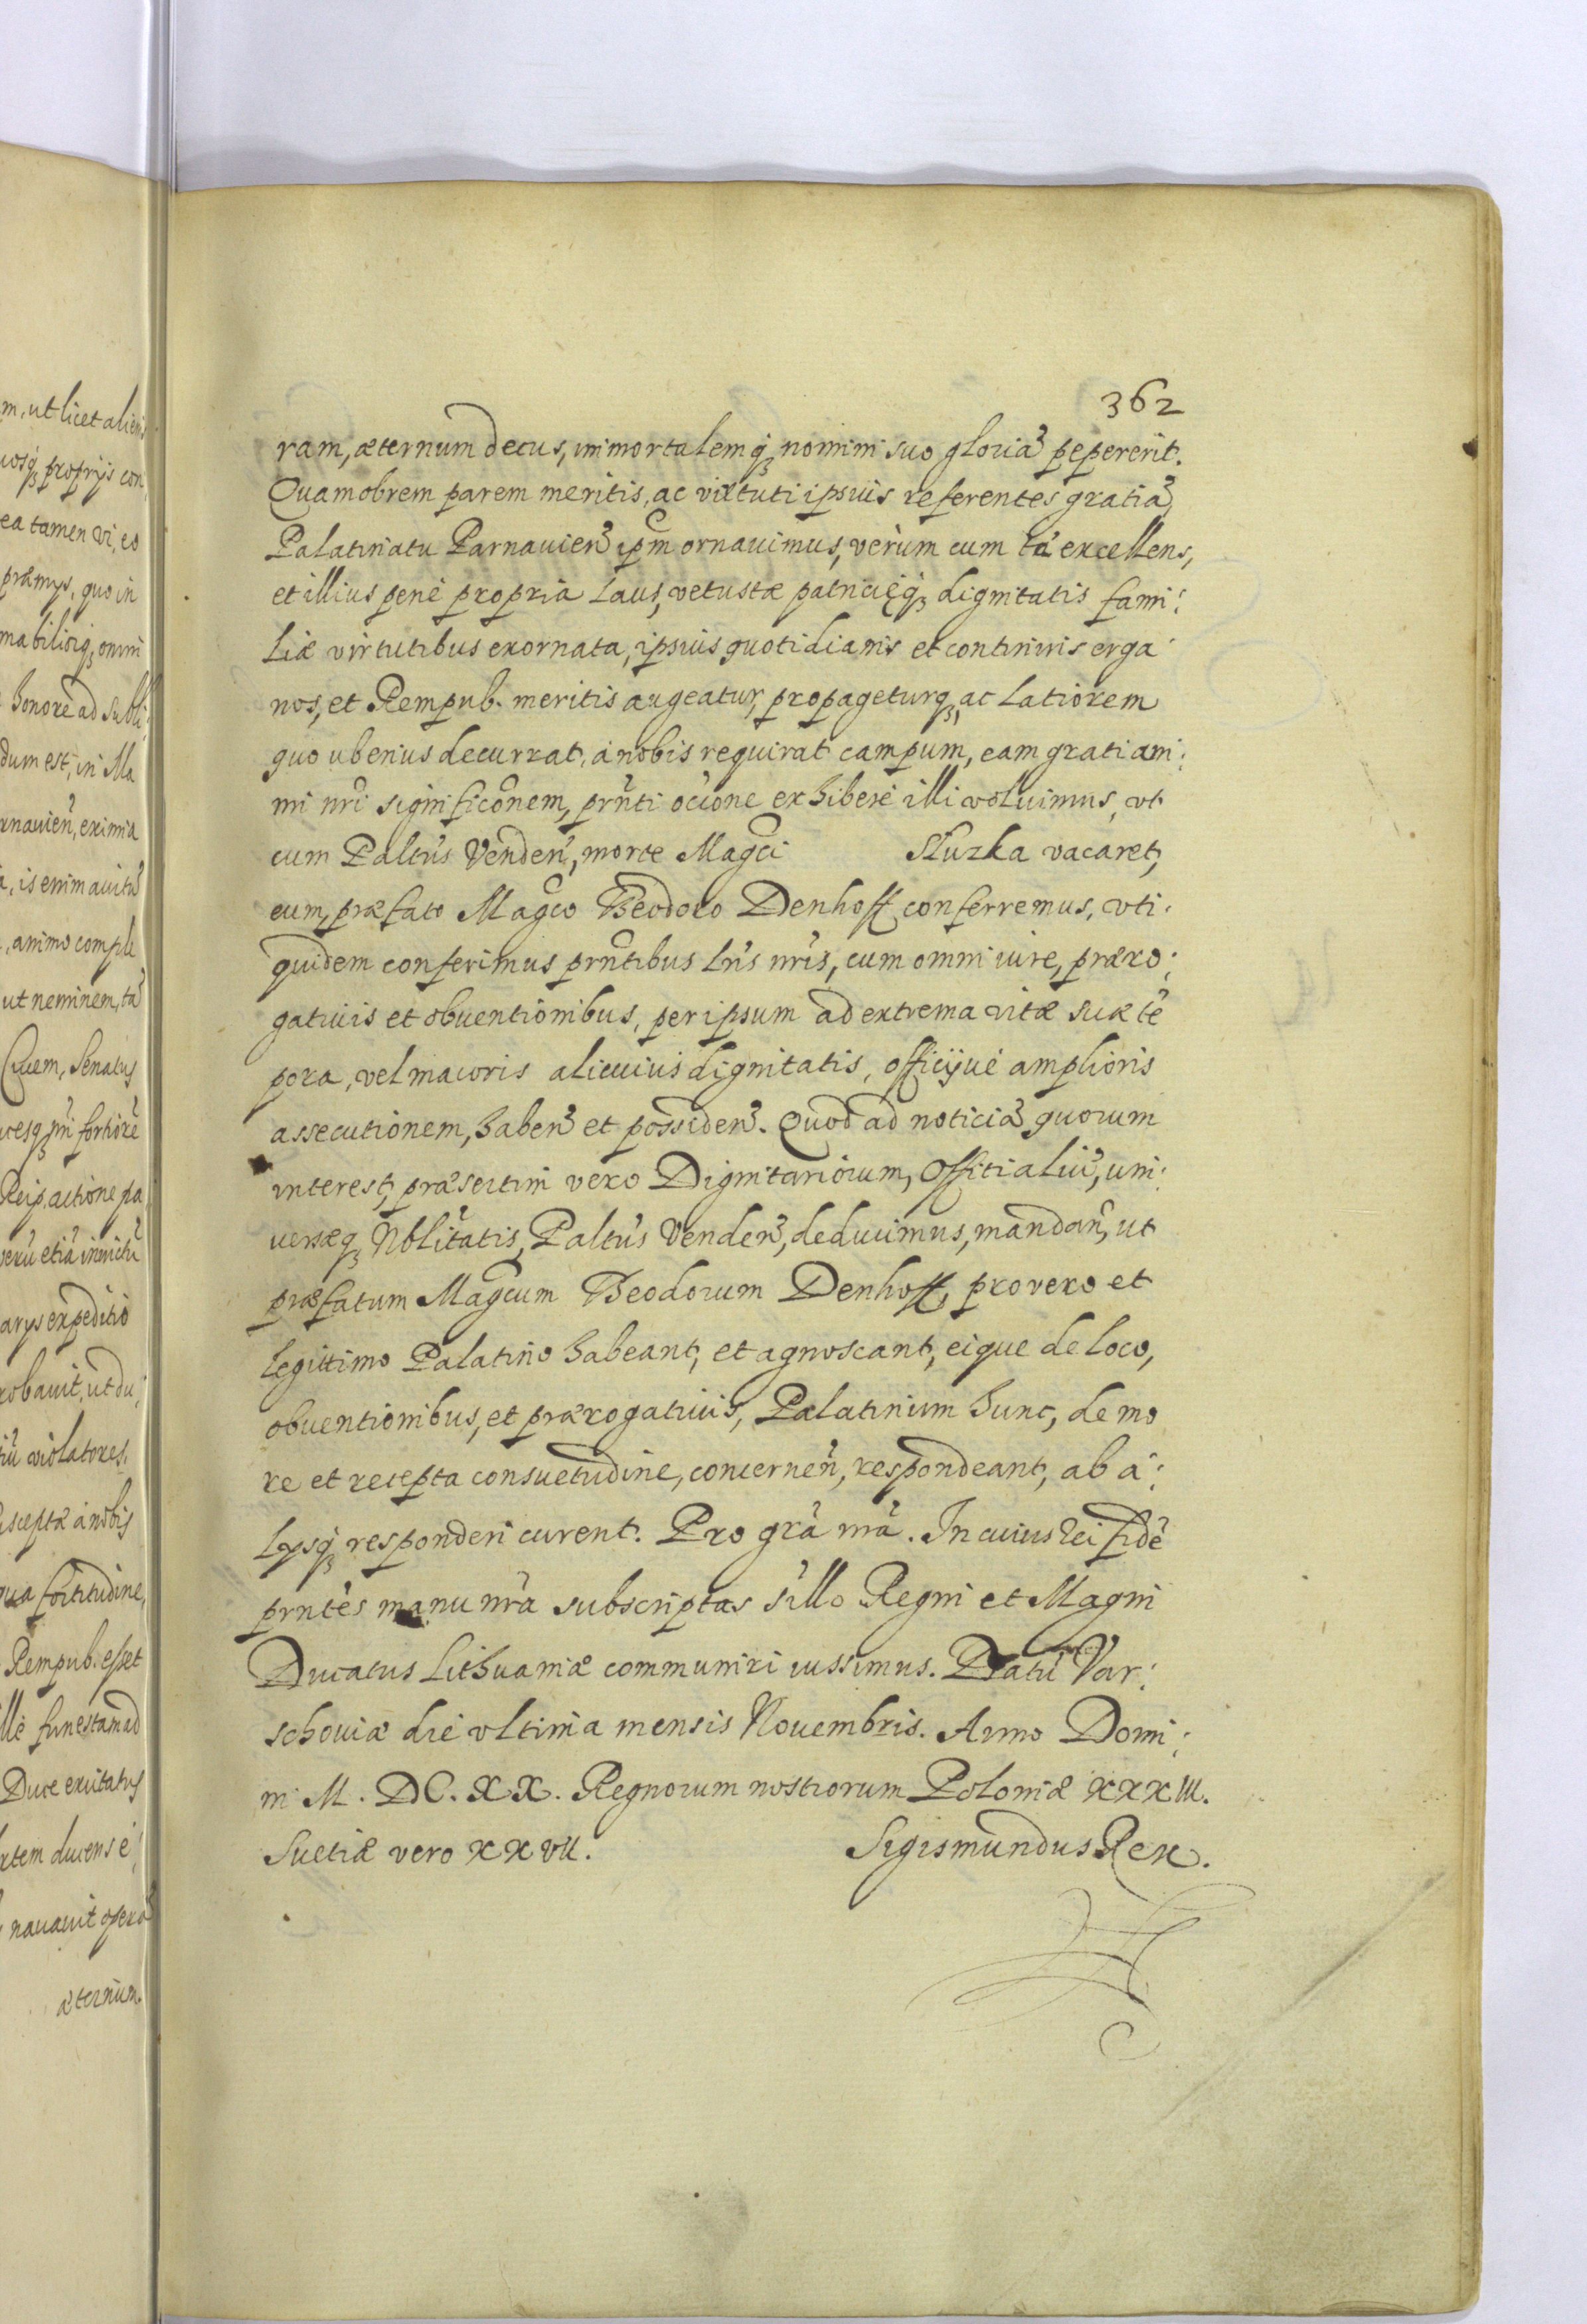 m, ut licet alienis
uosq₃ proprijs con
ea tamen vi, eo
præmijs, quo in
mabilisq₃ omni
honorē ad subli:
dum est, in Ma
rnavień, eximia
, is enim avitā
, animo comple
ut neminem, tā
Quem, Senatus
Reip. actione pa
verū etiā inimicū
arijs expeditiō
robavit, ut du:
violatores.
suscepta à nobis
qua fortitudine,
Rempub. esset
ille funestam ad
Duce excitatus
rtem ducens è
navavit operā
æternum.
362
ram, æternum decus, immortalemq₃ nomini suo gloriā pepererit.
Quamobrem parem meritis, ac virtuti ipsius referentes gratiā,
Palatinatu Parnavień ipm̃ ornavimus, verùm cum tā excellens,
et illius penè propria laus, vetustæ patricięq₃ dignitatis fami:
liæ virtutibus exornata, ipsius quotidianis et continuis erga
nos, et Rempub. meritis augeatur, propageturq₃, ac latiorem
quo uberius decurrat, à nobis requirat campum, eam grati ani:
mi nr̃i significõnem, prñti ocĩone exhibere illi voluimus, vt
cum Paltũs Venden̄, morte Magc̃i Słuzka vacaret,
eum, præfato Magc̃o Theodoro Denhoff conferremus, vti:
quidem conferimus prñtibus lr̃is nr̃is, cum omni iure, præro:
gativis et obventionibus, per ipsum ad extrema vitæ suæ tē
pora, vel maioris alicuius dignitatis, officijvè amplioris
assecutionem, haben̄ et possiden̄. Quod ad noticiā quorum
interest, præsertim vero Dignitariorum, Officialiū, uni:
versæq₃ Nblit̃atis, Paltũs Venden̄, deducimus, mandań, ut
præfatum Magc̃um Theodorum Denhoff, pro vero et
legittimo Palatino habeant, et agnoscant, eique de loco,
obventionibus, et prærogativis, Palatinum hunc, de mo
re et recepta consuetudine, concerneń, respondeant, ab a:
lijsq₃ responderi curent. Pro gr̃a nr̃a. In cuius rei fidē
prñtes manu nr̃a subscriptas s̃illo Regni et Magni
Ducatus Lithuaniæ communiri iussimus. Datū Var:
schoviæ die vltima mensis Novembris. Anno Domi:
ni M. DC. XX. Regnorum nostrorum Poloniæ XXXIII.
Suetiæ vero XXVII. Sigismundus Rex.